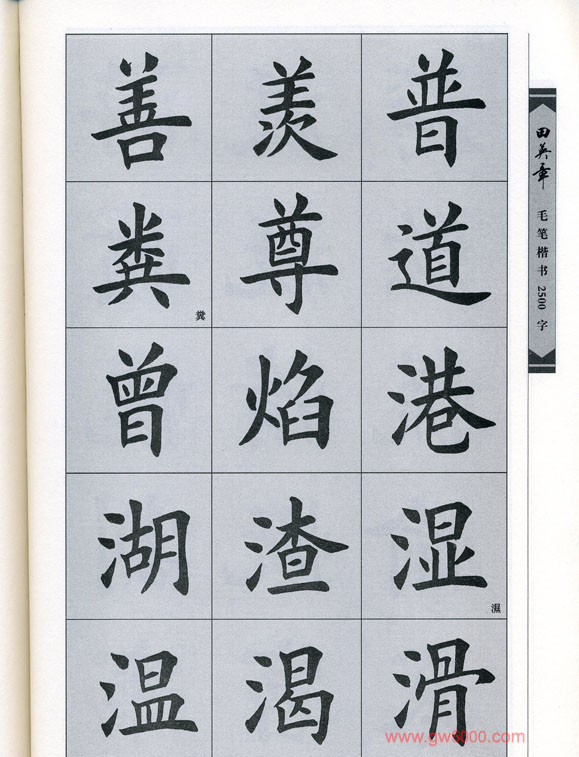 善 羡 普
粪 尊 道
糞
曾 焰 港
湖 渣 湿
濕
温 渴 滑
田英章
毛笔楷书2500字
www.gw5000.com